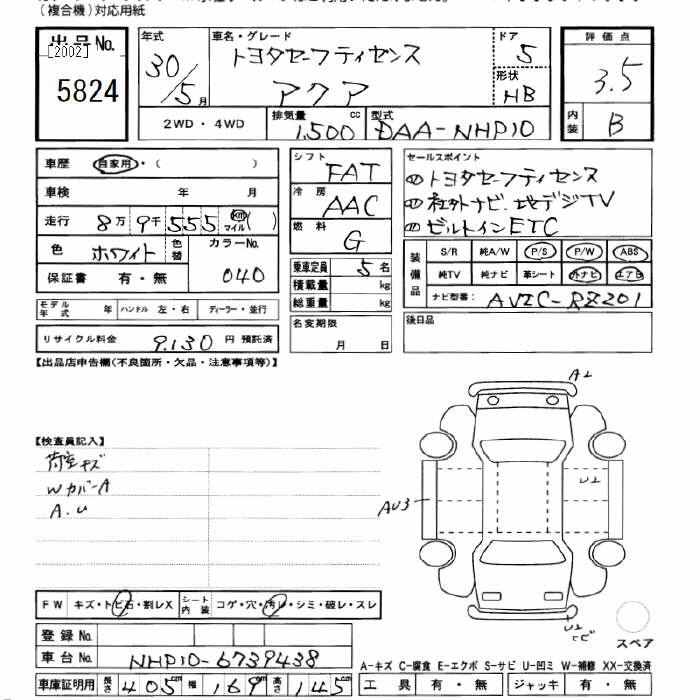 (複合機)対応用紙
出品No.
[2002]
5824
年式
30/5月
車名・グレード
トヨタセーフティセンス
アクア
ドア
5
形状
HB
評価点
3.5
内装
B
2WD・4WD
排気量
1,500 cc
型式
DAA-NHP10
車歴 自家用・( )
車検 年 月
走行 8万9千555 km マイル ( )
色 ホワイト 色替
カラーNo.
040
保証書 有・無
モデル年式 年 ハンドル 左・右 ディーラー・並行
リサイクル料金 9,130 円 預託済
シフト
FAT
冷房
AAC
燃料
G
乗車定員 5名
積載量 kg
総重量 kg
名変期限
月 日
セールスポイント
①トヨタセーフティセンス
②社外ナビ、地デジTV
③ビルトインETC
装備品
S/R 純A/W P/S P/W ABS
純TV 純ナビ 革シート 外ナビ エアB
ナビ型番: AVIC-RZ201
後日品
【出品店申告欄(不良箇所・欠品・注意事項等)】
【検査員記入】
荷室キズ
WカバーA
A.U
A2
AU3
U2
U2
スペア
FW キズ・トビ石・割レX
シート内装 コゲ・穴・汚レ・シミ・破レ・スレ
登録No.
車台No. NHP10-6739438
車庫証明用 長さ 405cm 幅 169cm 高さ 145cm
A-キズ C-腐食 E-エクボ S-サビ U-凹ミ W-補修 XX-交換済
工具 有・無 ジャッキ 有・無